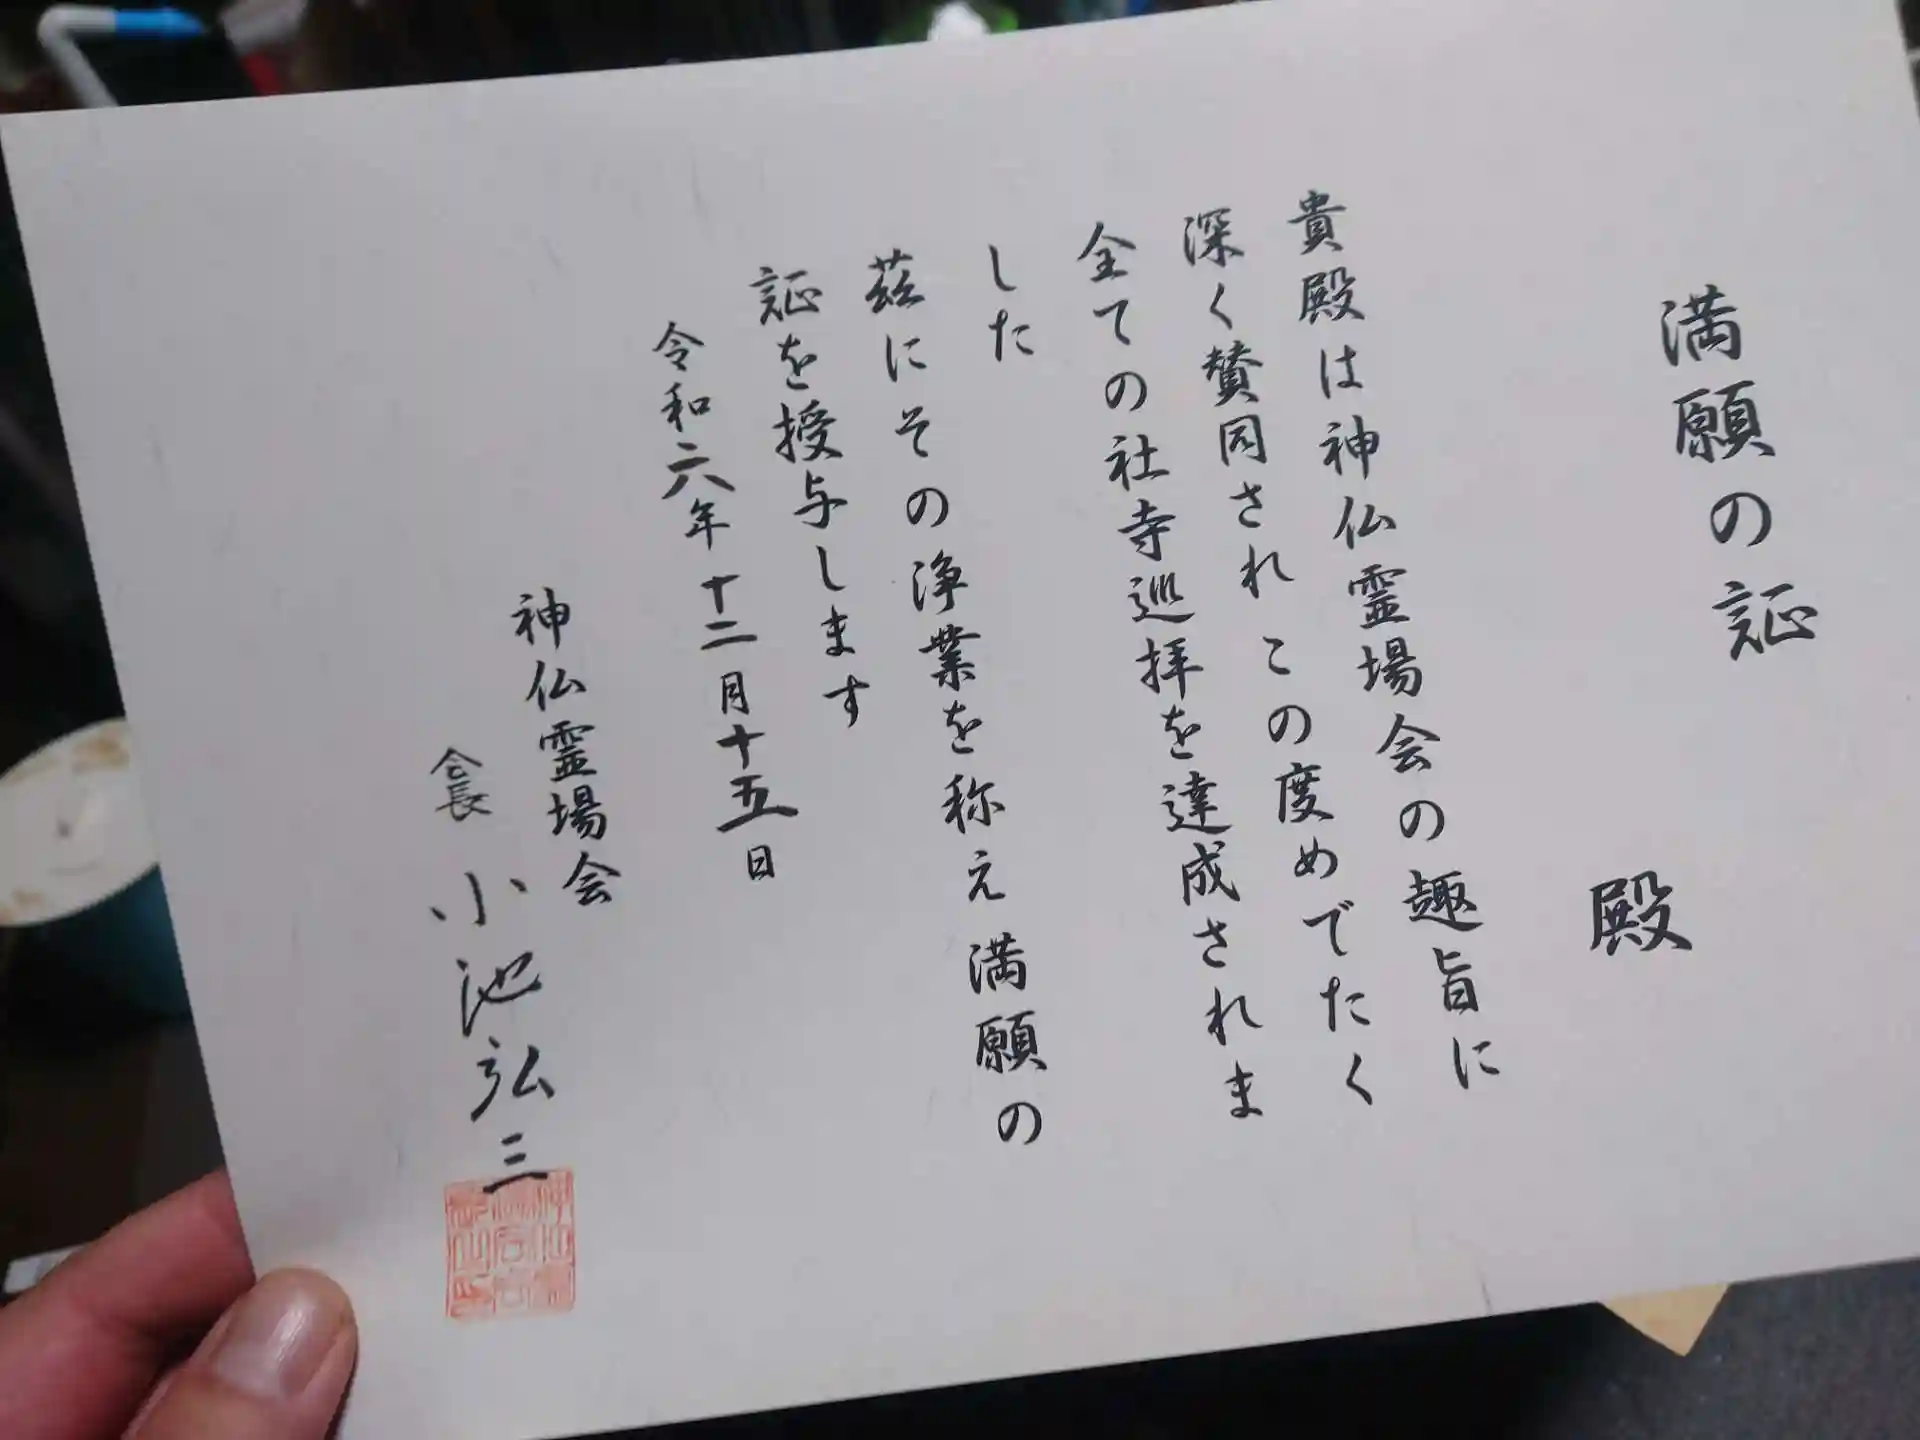 満願の証
殿
貴殿は神仏霊場会の趣旨に
深く賛同され この度めでたく
全ての社寺巡拝を達成されま
した
茲にその浄業を称え 満願の
証を授与します
令和六年十二月十五日
神仏霊場会
会長 小池弘三